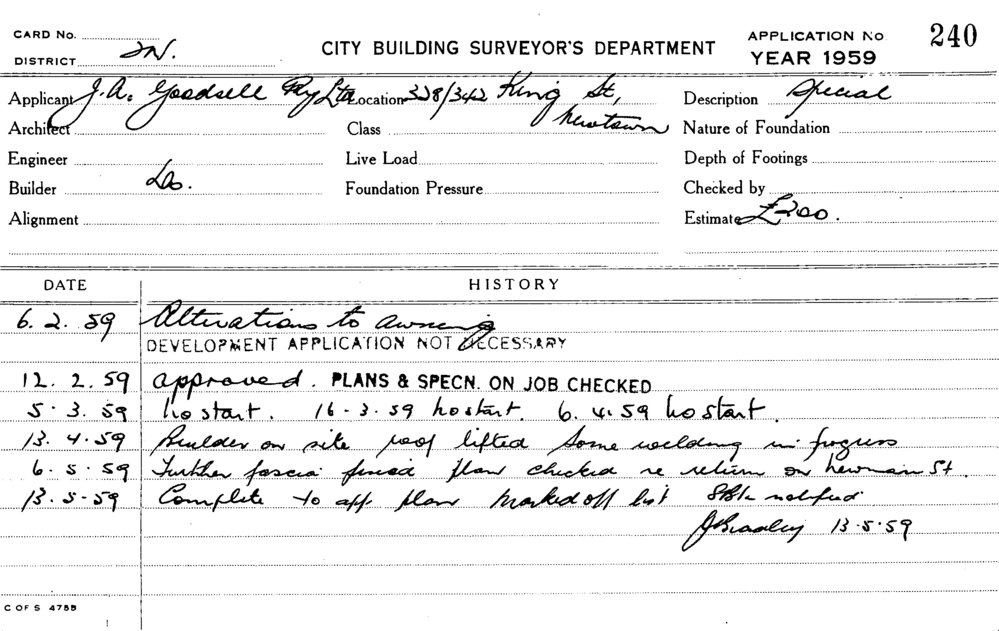 CARD No.
DISTRICT IN.
CITY BUILDING SURVEYOR'S DEPARTMENT
APPLICATION No 240
YEAR 1959
Applicant J.A. Goodsell Pty Ltd Location 328/342 King St, Newtown Description Special
Architect Class Nature of Foundation
Engineer Live Load Depth of Footings
Builder Do. Foundation Pressure Checked by
Alignment Estimate £200.
DATE HISTORY
6.2.59 Alterations to awning
DEVELOPMENT APPLICATION NOT NECESSARY
12.2.59 approved. PLANS & SPECN. ON JOB CHECKED
5.3.59 No start. 16-3.59 No start. 6.4.59 No start.
13.4.59 Builder on site roof lifted some welding in progress
6.5.59 Further fascia plan checked re return on Newman St.
13-5-59 Complete to app. plan Marked off list notified
JBradley 13.5.59
C OF S 4755